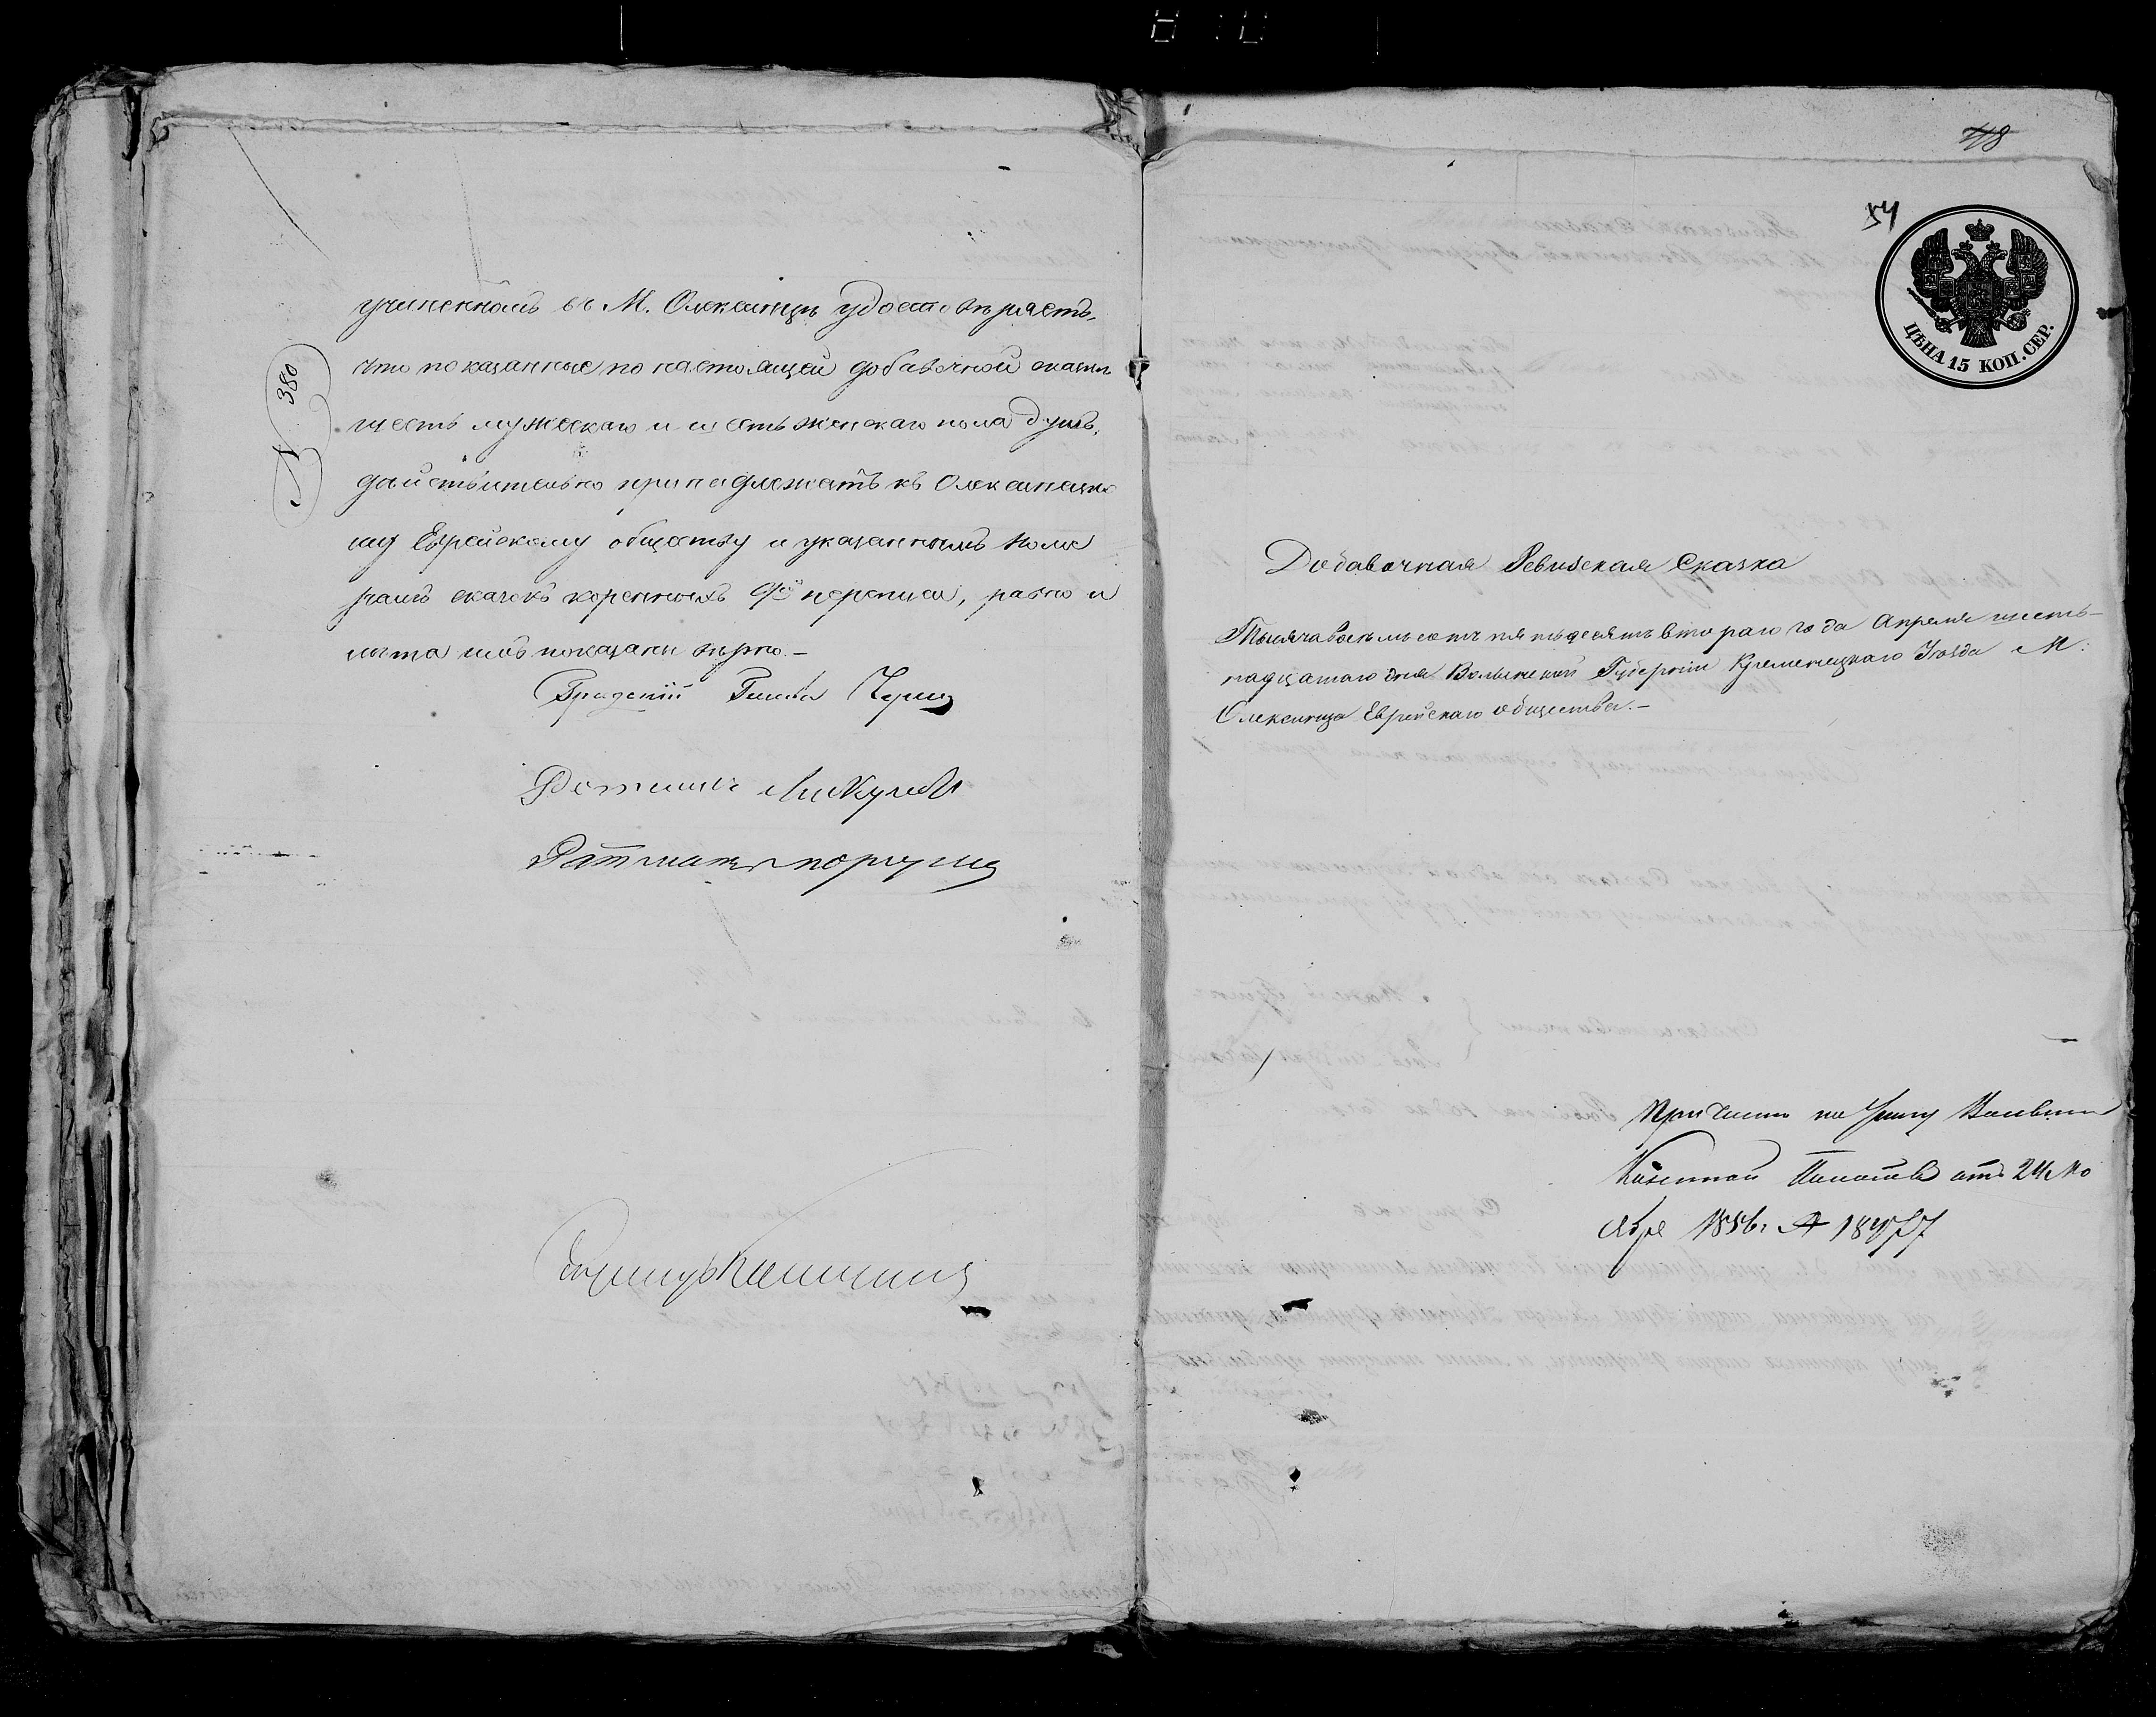 учиненномъ въ М. Олексинцѣ удостовѣряетъ,
что показанные по настоящей добавочной сказки
шесть мужескаго и шесть женскаго пола душъ,
дѣйствительно принадлежатъ къ Олексинецко
му Еврейскому обществу и указаннымъ номе
рамъ сказокъ коренныхъ 9й переписи, равно и
лѣта ихъ показаны вѣрно.—
N 380
Ратманъ
48
54
ЦѢНА 15 КОП. СЕР.
Добавочная Ревизская Сказка
Тысяча восемьсотъ пятьдесятъ втораго года Апреля шесть-
надцатаго дня Волынской Губерніи Кременецкаго Уезда М.
Олексинца Еврейскаго общества.—
Причислен по Указу Волынской
Казенной Палаты отъ 24 Но
ября 1856 г.